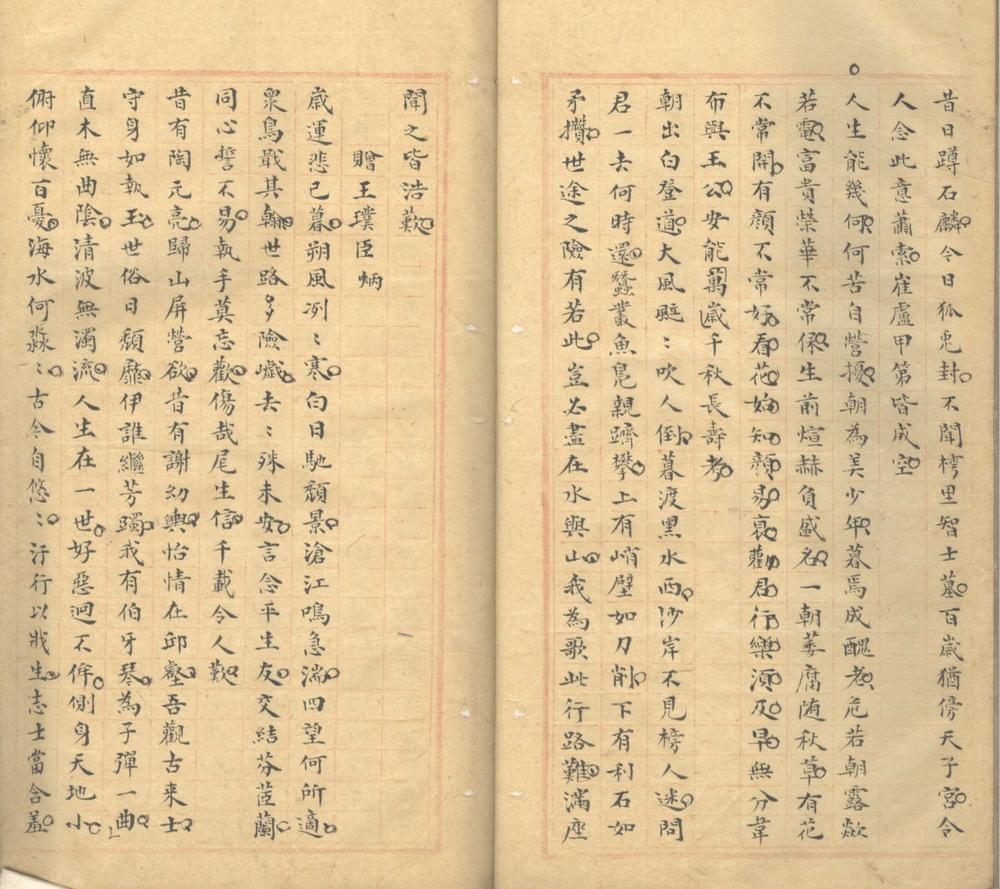 昔日蹲石麟今日狐兎封不聞樗里智士墓百歲猶傍天子宮令
人念此意蕭索崔盧甲第皆成空
人生能幾何何苦自營擾朝為美少年暮焉成醜老危若朝露歘
若電富貴榮華不常保生前煊赫負盛名一朝萎腐随秋草有花
不常開有顔不常好看花始知顔易衰勸君行樂須及早無分韋
布與王公安能萬歲千秋長壽考
朝出白登道大風颾〻吹人倒暮渡黑水西沙岸不見榜人迷問
君一去何時還蠶叢魚鳧親躋攀上有峭壁如刀削下有利石如
矛攢世途之險有若此豈必盡在水與山我為歌此行路難滿座
聞之皆浩歎
贈王璞臣炳
歲運悲已暮朔風冽〻寒白日馳頹景滄江鳴急湍四望何所適
衆鳥戢其翰世路多險巇去〻殊未安言念平生友交結芬茝蘭
同心誓不易執手莫忘歡傷哉尾生信千載令人歎
昔有陶元亮歸山屏營欲昔有謝幼輿怡情在邱壑吾觀古来士
守身如執玉世俗日頹靡伊誰繼芳躅我有伯牙琴為子彈一曲
直木無曲陰清波無濁流人生在一世好惡迥不侔側身天地小
俯仰懷百憂海水何淼〻古今自悠〻汙行以戕生志士當含羞